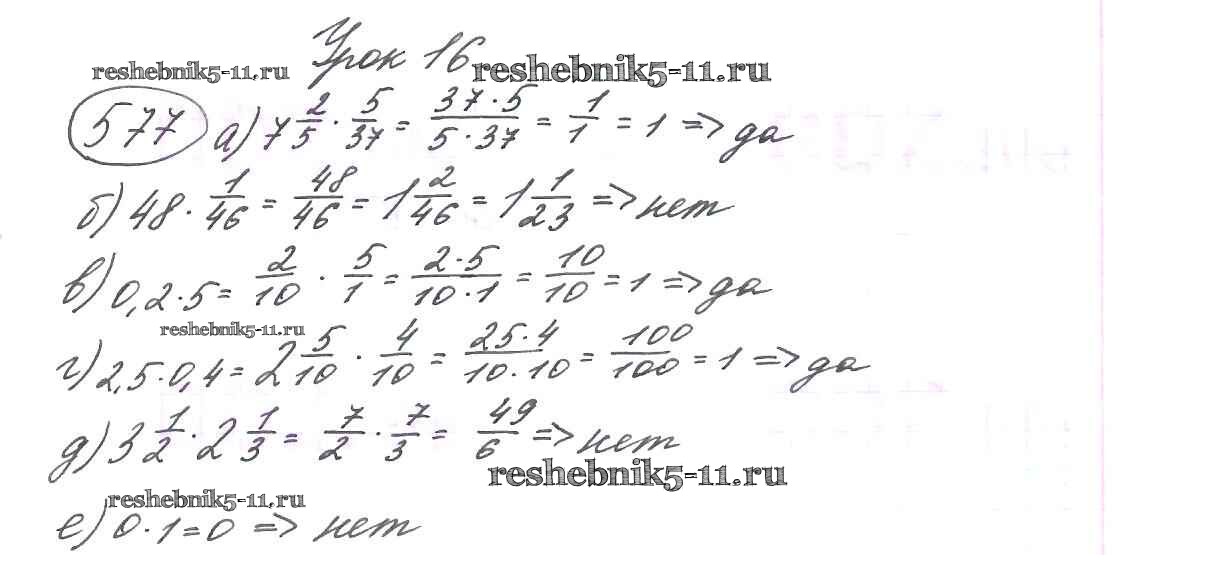 Урок 16
reshebnik5-11.ru reshebnik5-11.ru
577 а) 7 2/5 · 5/37 = 37·5/5·37 = 1/1 = 1 => да
б) 48 · 1/46 = 48/46 = 1 2/46 = 1 1/23 => нет
в) 0,2·5 = 2/10 · 5/1 = 2·5/10·1 = 10/10 = 1 => да
reshebnik5-11.ru
г) 2,5·0,4 = 2 5/10 · 4/10 = 25·4/10·10 = 100/100 = 1 => да
д) 3 1/2 · 2 1/3 = 7/2 · 7/3 = 49/6 => нет
reshebnik5-11.ru
reshebnik5-11.ru
е) 0·1=0 => нет